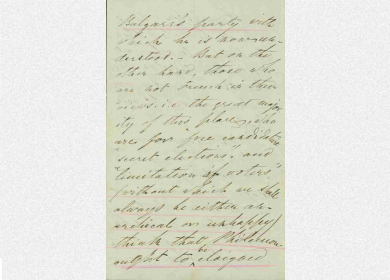 Bulgaris's party with
which he is now un-
derstood. – But on the
other hand, those who
are not French in their
views i.e. the great major
ity of this place, who
are for "free candidature
"secret elections", and
"limitation of voters"
(without which we shall
always be either an-
archical or unhappy)
think that Philemon
ought to be